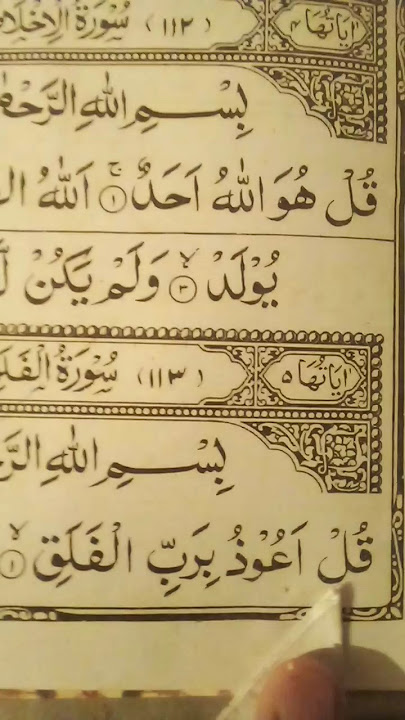 اٰيَاتُهَا ٤ (١١٢) سُوْرَةُ الْاِخْلَا
بِسْمِ اللّٰهِ الرَّحْمٰ
قُلْ هُوَ اللّٰهُ اَحَدٌ ۚ ١ اَللّٰهُ ال
يُوْلَدْ ۙ ٣ وَلَمْ يَكُنْ لَّ
اٰيَاتُهَا ٥ (١١٣) سُوْرَةُ الْفَلَ
بِسْمِ اللّٰهِ الرَّ
قُلْ اَعُوْذُ بِرَبِّ الْفَلَقِ ۙ ١